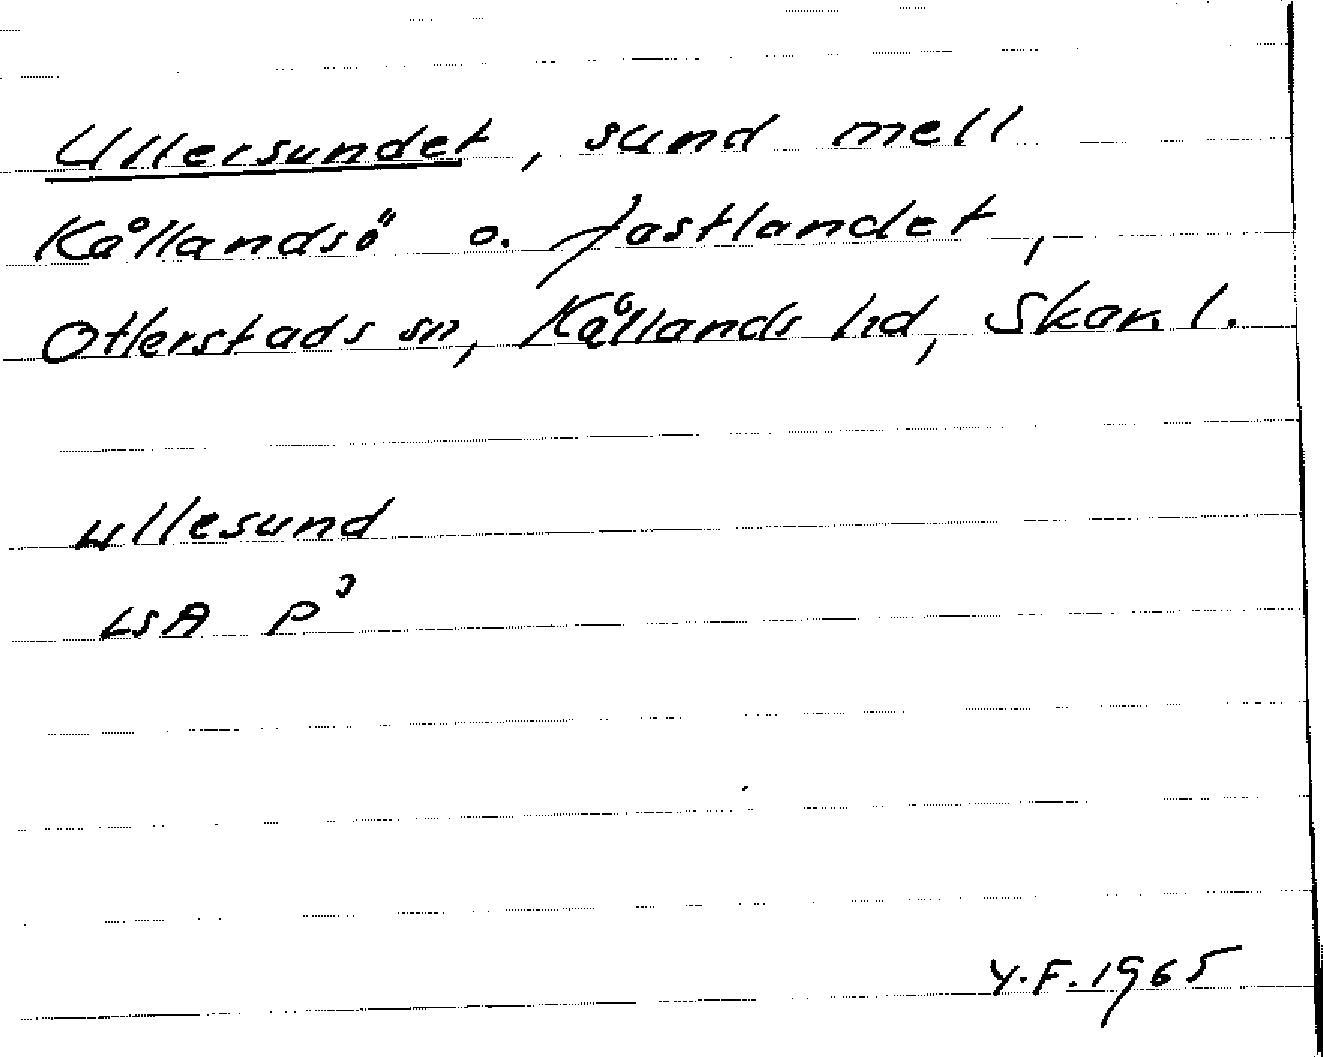 Ullersundet, sund mell
Kållandsö o. fastlandet,
Otterstads sn, Kållands hd, Skar. l.
Ullesund
LSA P³
Y.F. 1965